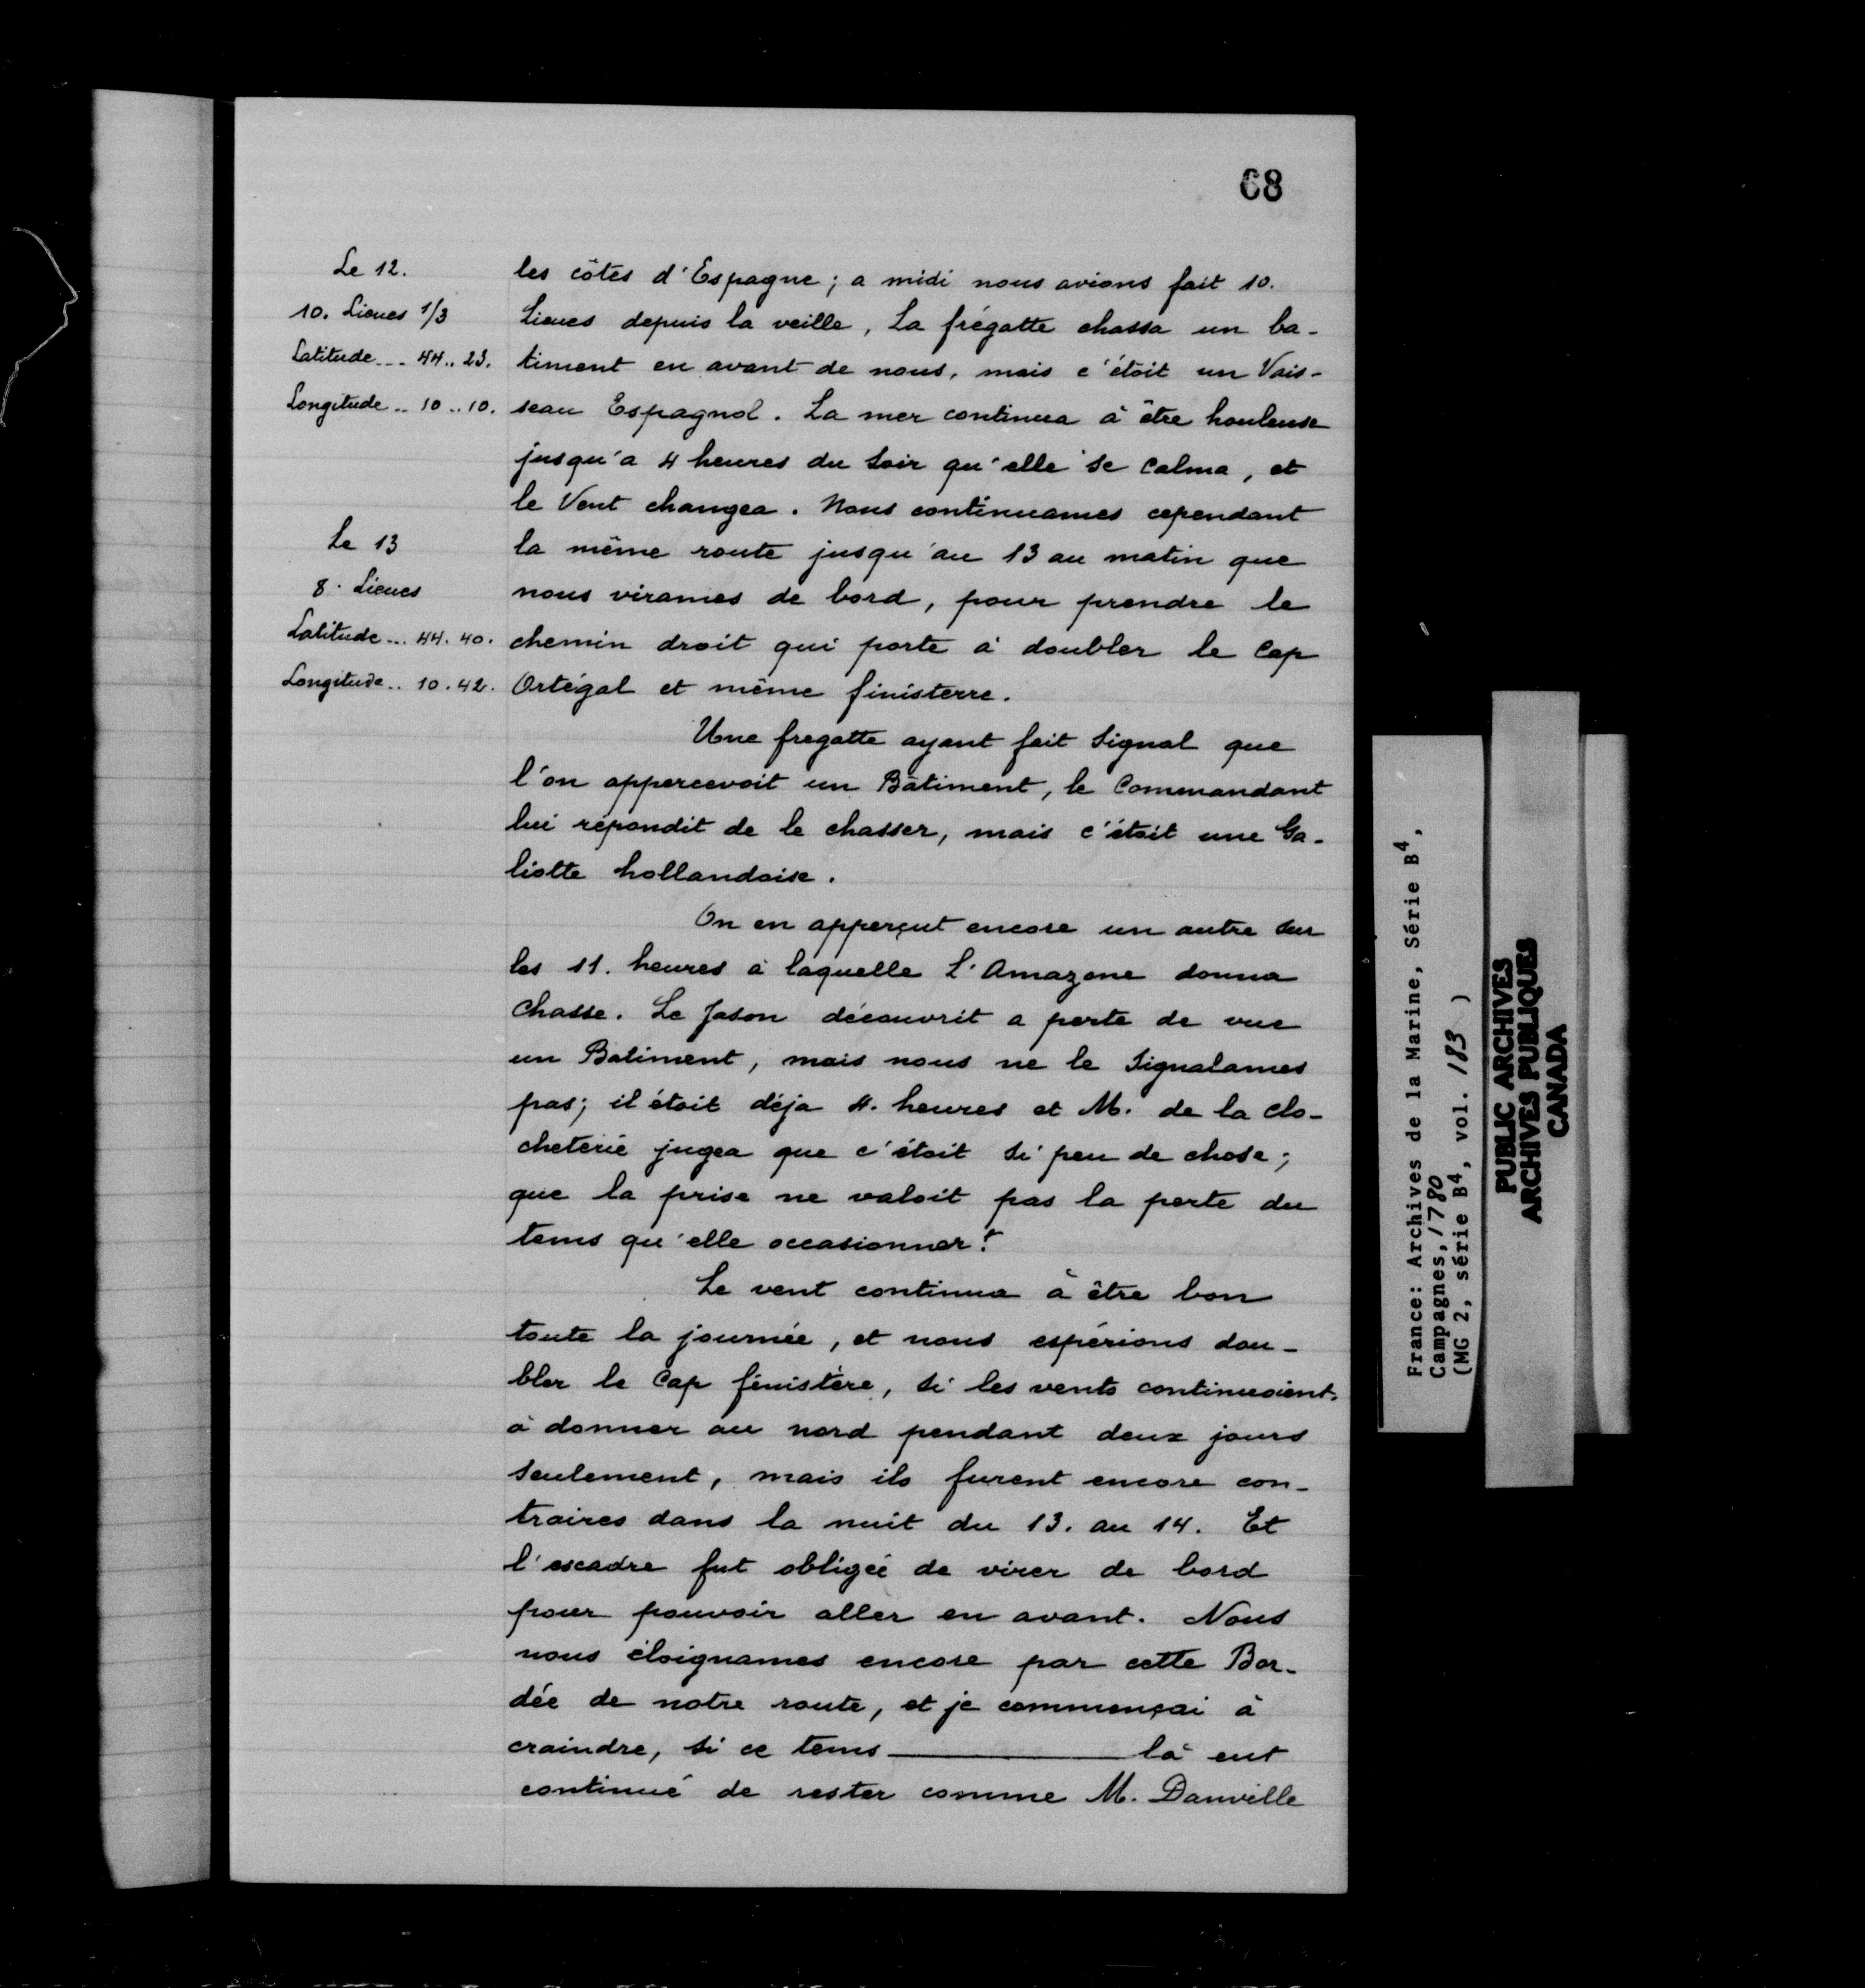 68
Le 12.
10. Lieues 1/3
Latitude... 44.. 23.
Longitude.. 10..10.
les côtes d'Espagne; a midi nous avions fait 10.
Lieues depuis la veille, La frégatte chassa un ba-
timent en avant de nous, mais c'étoit un Vais-
seau Espagnol. La mer continua à être houleuse
jusqu'a 4 heures du Soir qu'elle se calma, et
le Vent changea. Nous continuames cependant
Le 13
8. Lieues
Latitude... 44. 40.
Longitude.. 10. 42.
la même route jusqu'au 13 au matin que
nous virames de bord, pour prendre le
chemin droit qui porte à doubler le Cap
Ortégal et même finisterre.
Une fregatte ayant fait Signal que
l'on appercevoit un Bâtiment, le Commandant
lui répondit de le chasser, mais c'étoit une Ga-
liotte hollandoise.
On en apperçut encore un autre sur
les 11. heures à laquelle L'Amazone donna
Chasse. Le Jason découvrit a perte de vue
un Batiment, mais nous ne le Signalames
pas; il étoit déja 4. heures et M. de la clo-
cheterie jugea que c'étoit si peu de chose;
que la prise ne valoit pas la perte du
tems qu'elle occasionner!
Le vent continua à être bon
toute la journée, et nous espérions dou-
bler le Cap finistère, si les vents continuoient
à donner au nord pendant deux jours
seulement, mais ils furent encore con-
traires dans la nuit du 13. au 14. Et
l'escadre fut obligée de virer de bord
pour pouvoir aller en avant. Nous
nous éloignames encore par cette Bor-
dée de notre route, et je commençai à
craindre, si ce tems ——— là eut
continué de rester comme M. Danville
France: Archives de la Marine, Série B4,
Campagnes, 1780
(MG 2, série B4, vol. 183 )
PUBLIC ARCHIVES
ARCHIVES PUBLIQUES
CANADA